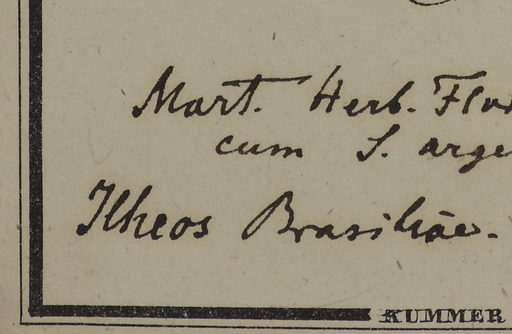 Mart. Herb. Flor
cum S. arge
Ilheos Brasiliae.
KUMMER